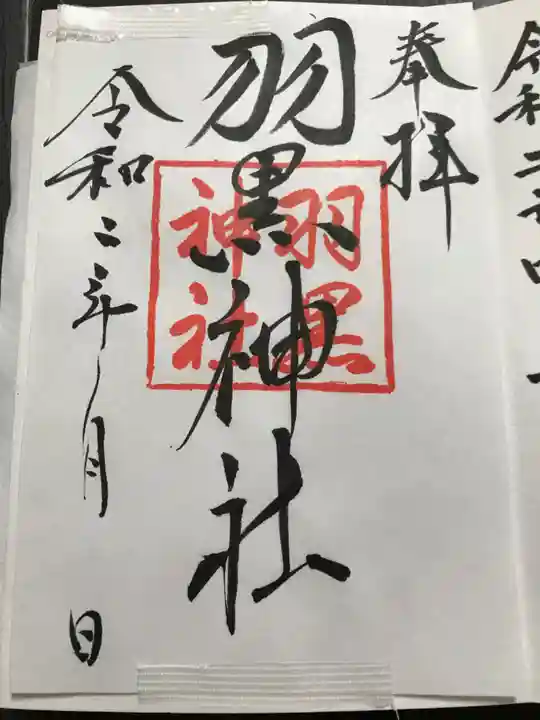 奉拝
羽黒神社
羽黒
神社
令和二年 月 日
令和二年